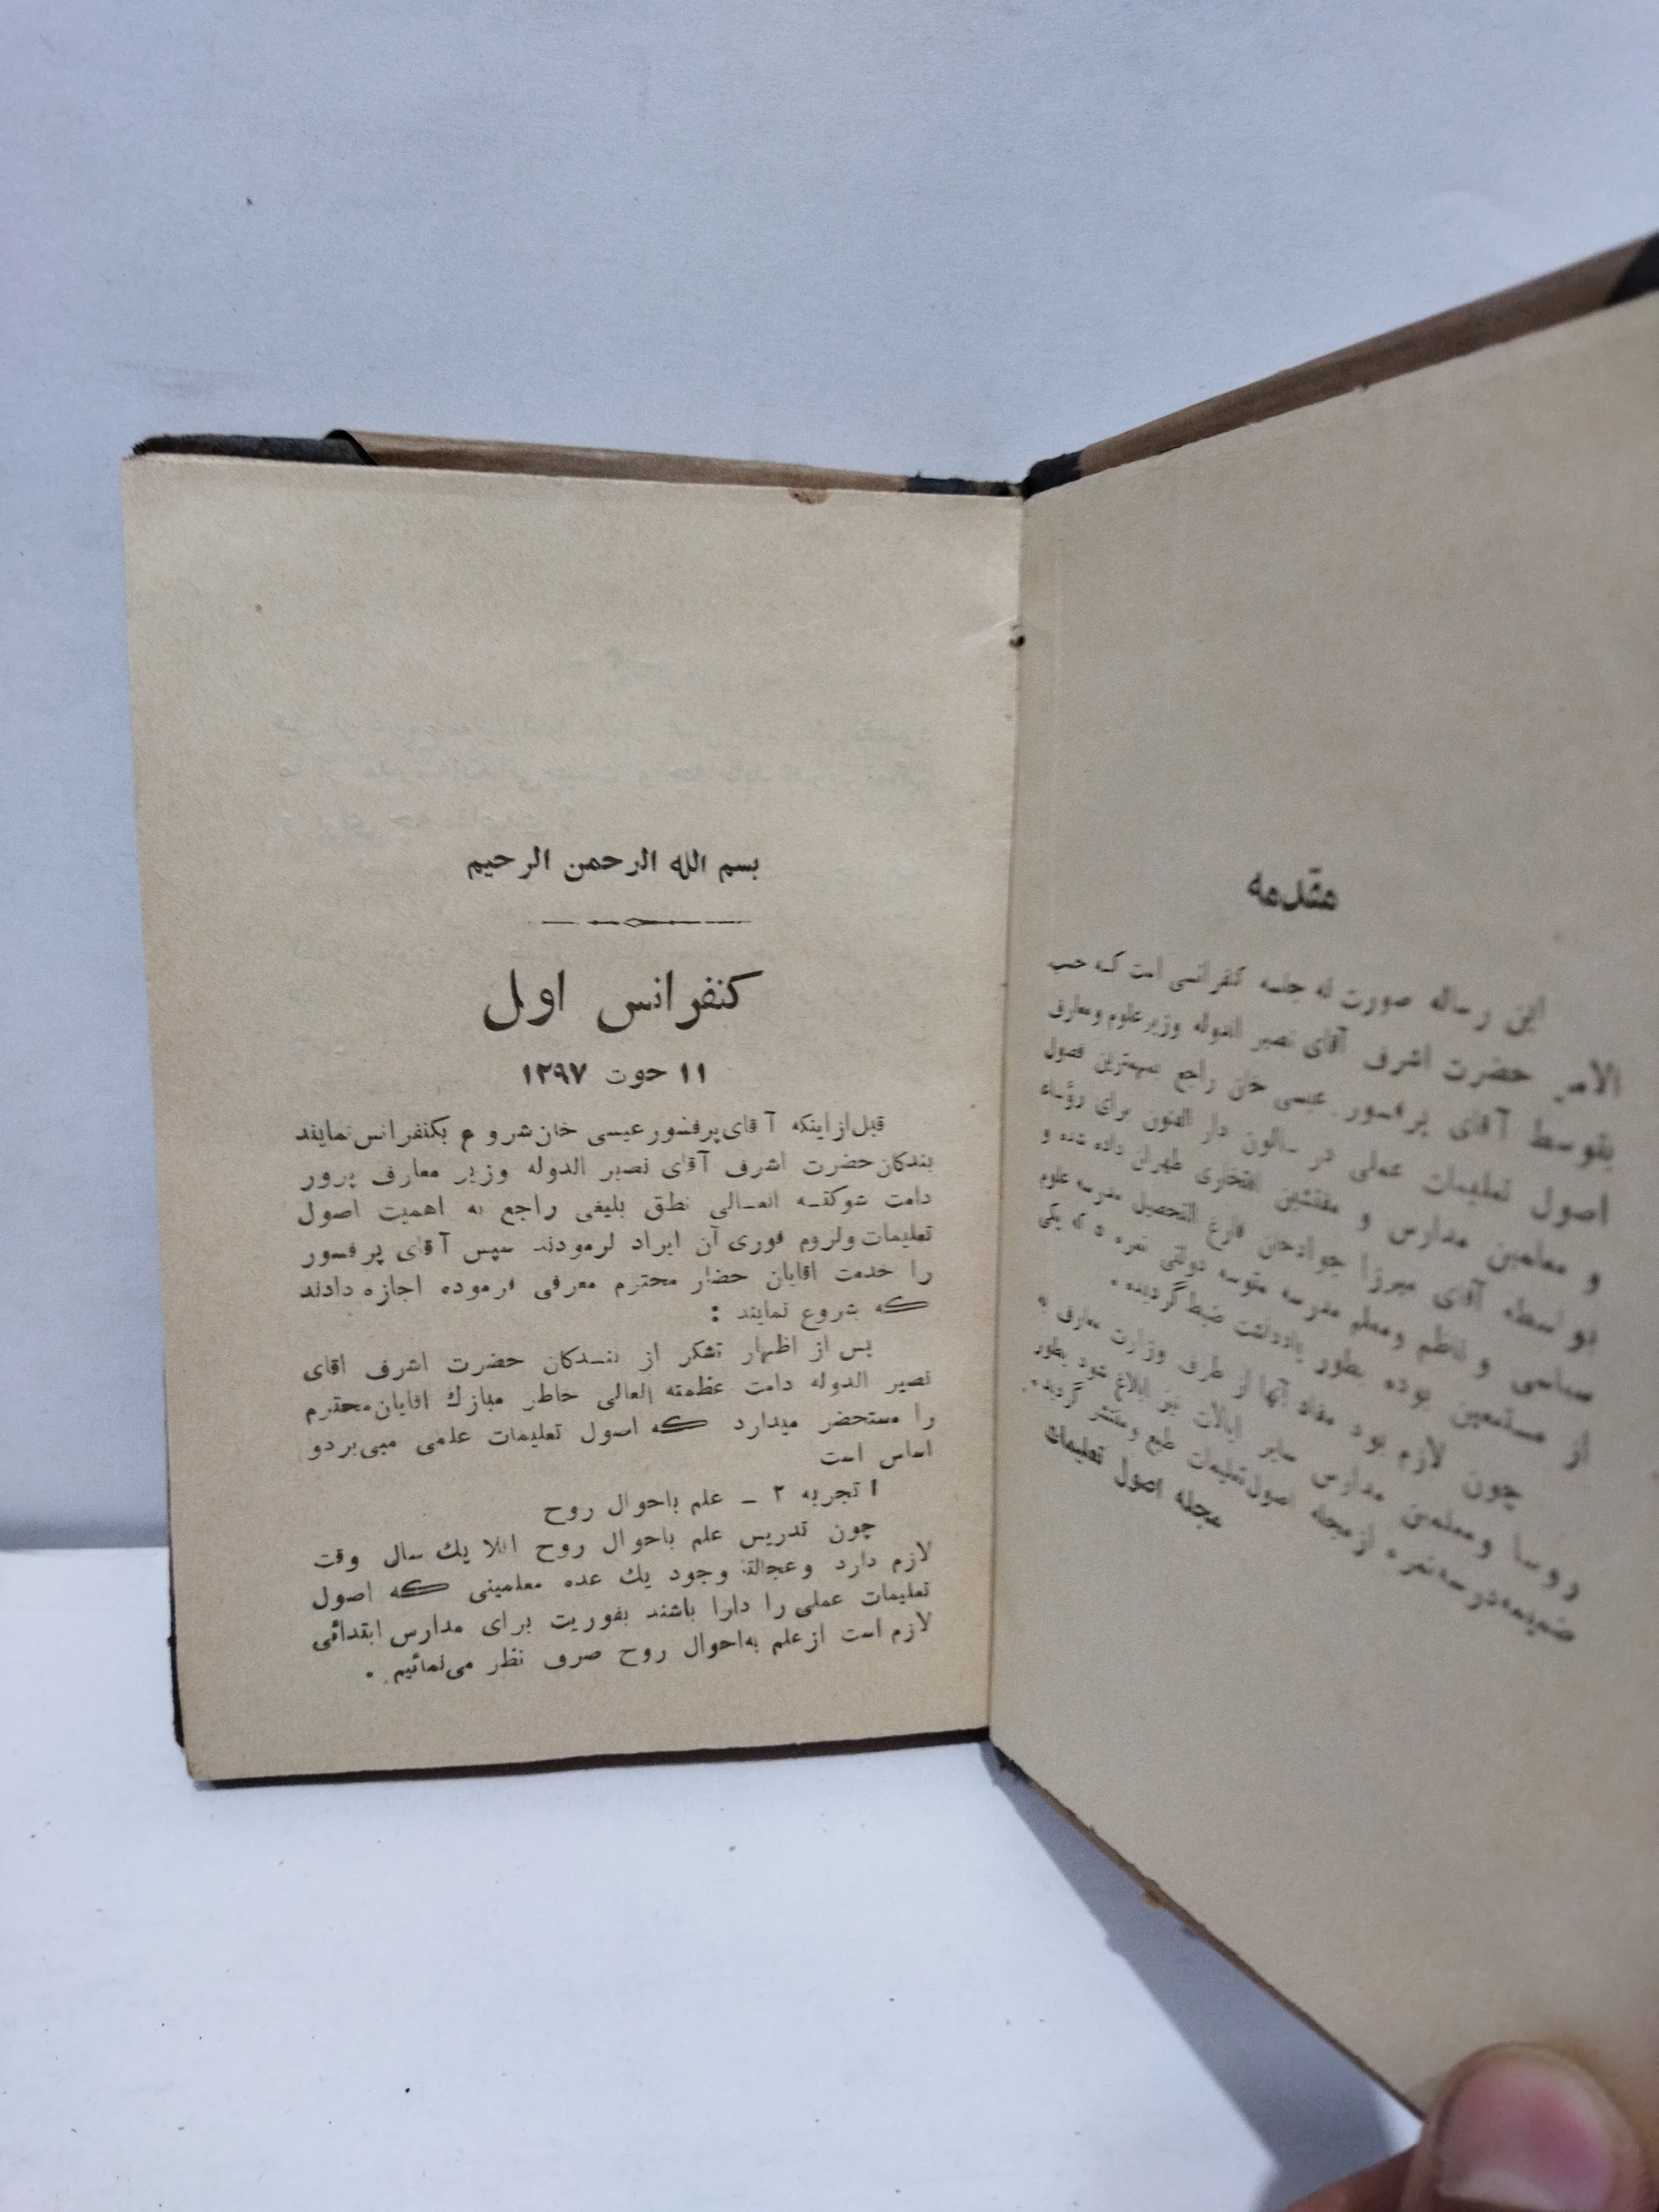 مقدمه
این رساله صورت نه جلسه کنفرانسی است که حسب
الامر حضرت اشرف آقای نصیر الدوله وزیر علوم و معارف
بتوسط آقای پرفسور عیسی خان راجع بمهمترین فصول
اصول تعلیمات عملی در سالون دار الفنون برای رؤساء
و معلمین مدارس و مفتشین افتخاری طهران داده شده و
بواسطه آقای میرزا جوادخان فارغ التحصیل مدرسه علوم
سیاسی و ناظم و معلم مدرسه متوسه دولتی نمره ۵ که یکی
از مستمعین بوده بطور یادداشت ضبط گردیده .
چون لازم بود مفاد آنها از طرف وزارت معارف به
روسا و معلمین مدارس سایر ایالات نیز ابلاغ شود بطور
ضمیمه در سه نمره از مجله اصول تعلیمات طبع و منتشر گردیده .
مجله اصول تعلیمات
بسم الله الرحمن الرحیم
کنفرانس اول
۱۱ حوت ۱۲۹۷
قبل از اینکه آقای پرفسور عیسی خان شروع بکنفرانس نمایند
بندکان حضرت اشرف آقای نصیر الدوله وزیر معارف پرور
دامت شوکته العالی نطق بلیغی راجع به اهمیت اصول
تعلیمات و لزوم فوری آن ایراد فرمودند سپس آقای پرفسور
را خدمت اقایان حضار محترم معرفی فرموده اجازه دادند
که شروع نمایند :
پس از اظهار تشکر از بندکان حضرت اشرف اقای
نصیر الدوله دامت عظمته العالی خاطر مبارك اقایان محترم
را مستحضر میدارد که اصول تعلیمات علمی مبی بر دو
اساس است
۱ تجربه ۲ ــ علم باحوال روح
چون تدریس علم باحوال روح اقلا یك سال وقت
لازم دارد و عجالتة وجود یك عده معلمینی که اصول
تعلیمات عملی را دارا باشند بفوریت برای مدارس ابتدائی
لازم است از علم به‌احوال روح صرف نظر می‌نمائیم .